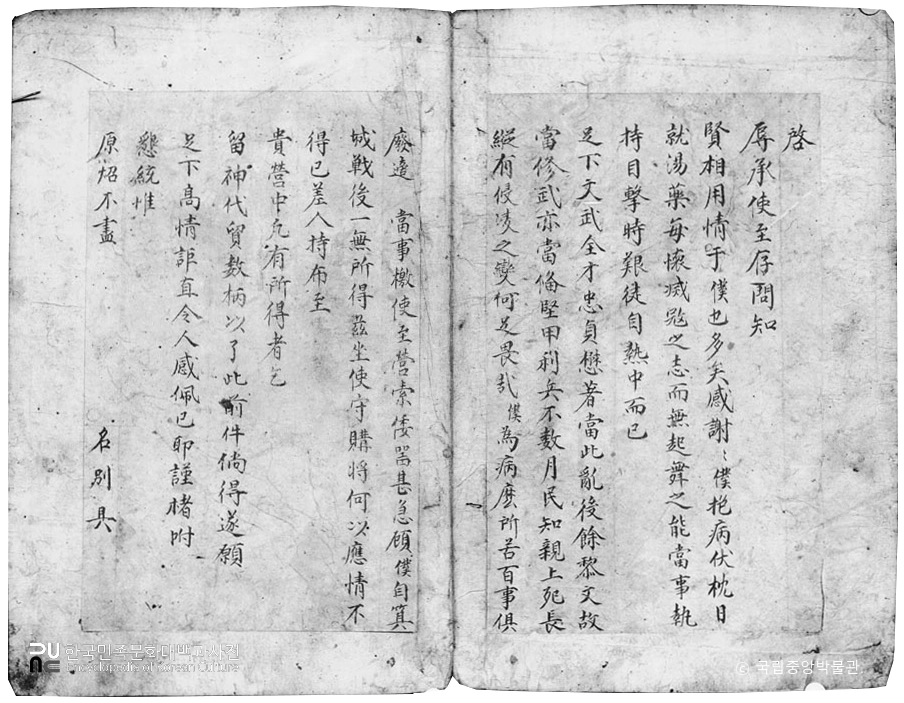 啓
辱承使至存問知
賢相用情于僕也多矣感謝〻僕抱病伏枕日
就湯藥每懷滅 之志而無起舞之能當事執
持目擊時艱徒自熱中而已
足下文武全才忠貞懋著當此亂後餘黎文故
當修武亦當俻堅甲利兵不數月民知親上死長
縱有侵凌之變何足畏哉僕為病魔所苦百事俱
廢邉 當事檄使至營索倭 甚急願僕自箕
城戰後一無所得茲坐使守購將何以應情不
得已差人持布至
貴營中凡有所得者乞
留神代貿數柄以了此前件倘得遂願
足下高情詎直令人感佩已耶謹楮附
懇統惟
原炤不盡
名别具
한국민족문화대백과사전
Encyclopedia of Korean Culture
(c) 국립중앙박물관